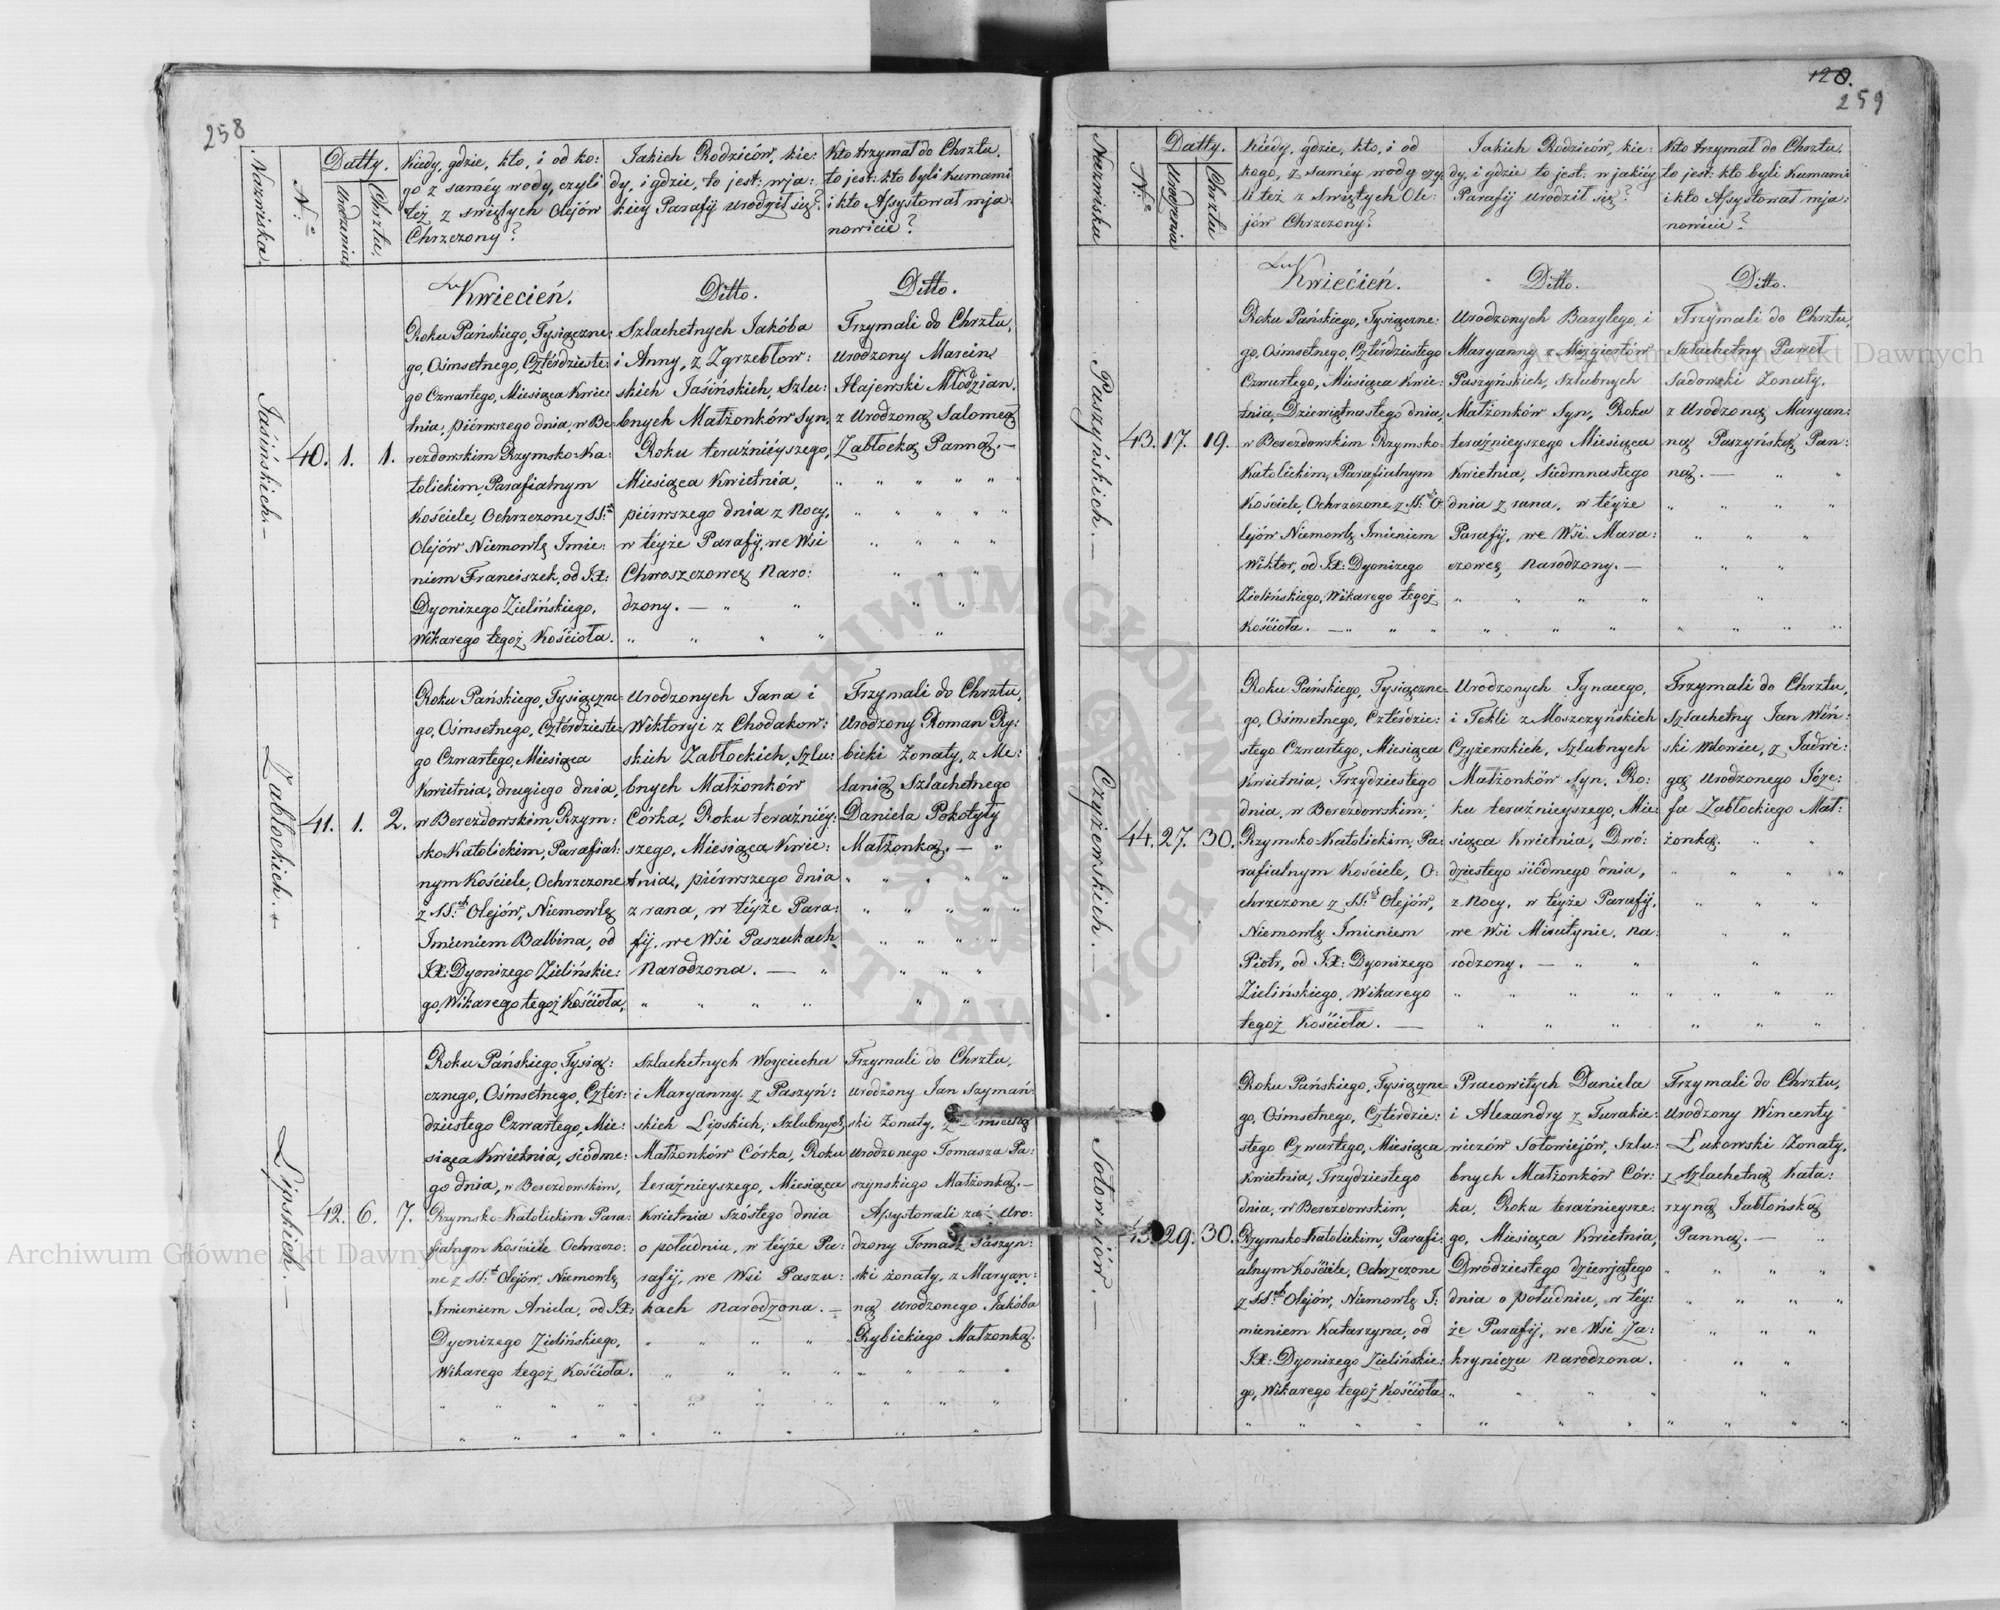 258
Nazwiska.
N:o
Datty.
Urodzenia
Chrztu.
Kiedy, gdzie, kto, i od ko:
go z saméy wody, czyli
też z świętych Olejów
Chrzczony?
Jakich Rodziców, kie:
dy, i gdzie, to jest: w ja:
kiéy Parafij urodził się?
Kto trzymał do Chrztu,
to jest: kto byli Kumami
i kto Assystował mja:
nowicie?
Kwiecień.
Ditto.
Ditto.
Jasińskich.
40. 1. 1.
Roku Pańskiego, Tysiączne:
go, Ośmsetnego, Czterdzieste:
go Czwartego, Miesiąca Kwie:
tnia, piérwszego dnia, w Be:
rezdowskim Rzymsko-Ka:
tolickim, Parafialnym
Kościele, Ochrzczone z SS:
Olejów Niemowlę Imie:
niem Franciszek, od JX:
Dyonizego Zielińskiego,
Wikarego tegoż Kościoła.
Szlachetnych Jakóba
i Anny, z Zgrzebłow:
skich Jasińskich, Szlu:
bnych Małżonków Syn,
Roku teraźniéyszego,
Miesiąca Kwietnia,
piérwszego dnia z Nocy,
w téyże Parafij, we Wsi
Chwoszczowcę Naro:
dzony.
Trzymali do Chrztu,
Urodzony Marcin
Hajewski Młodzian,
z Urodzoną Salomeą
Zabłocką Panną.
Zabłockich.
41. 1. 2.
Roku Pańskiego, Tysiączne:
go, Ośmsetnego, Czterdzieste:
go Czwartego, Miesiąca
Kwietnia, drugiego dnia,
w Berezdowskim, Rzym:
sko-Katolickim, Parafial:
nym Kościele, Ochrzczone
z SS: Olejów, Niemowlę
Imieniem Balbina, od
JX: Dyonizego Zielińskie:
go, Wikarego tegoż Kościoła,
Urodzonych Jana i
Wiktoryi z Chodakow:
skich Zabłockich, Szlu:
bnych Małżonków
Córka, Roku teraźniéy:
szego, Miesiąca Kwie:
tnia, piérwszego dnia
z rana, w téyże Para:
fij, we Wsi Paszukach
Narodzona.
Trzymali do Chrztu,
Urodzony Roman Ry:
bicki Żonaty, z Me:
lanią Szlachetnego
Daniela Pokotyły
Małżonką.
Lipskich.
42. 6. 7.
Roku Pańskiego, Tysią:
cznego, Ośmsetnego, Czter:
dziestego Czwartego, Mie:
siąca Kwietnia, siódme:
go dnia, w Berezdowskim,
Rzymsko-Katolickim Para:
fialnym Kościele Ochrzczo:
ne z SS: Olejów, Niemowlę
Imieniem Aniela, od JX:
Dyonizego Zielińskiego,
Wikarego tegoż Kościoła.
Szlachetnych Woyciecha
i Maryanny z Paszyń:
skich Lipskich, Szlubnych
Małżonków Córka, Roku
teraźnieyszego, Miesiąca
Kwietnia Szóstego dnia
o południu, w téyże Pa:
rafij, we Wsi Paszu:
kach Narodzona.
Trzymali do Chrztu,
Urodzony Jan Szymań:
ski Żonaty,
Urodzonego Tomasza Pa:
szynskiego Małżonką.
Assystowali zaś: Uro:
dzony Tomasz Paszyn:
ski żonaty, z Maryan:
ną Urodzonego Jakóba
Rybickiego Małżonką.
128.
259
Nazwiska
N:o
Datty.
Urodzenia
Chrztu
Kiedy, gdzie, kto, i od
kogo, z saméy wody czy
li też z Świętych Ole:
jów Chrzczony?
Jakich Rodziców, kie:
dy, i gdzie to jest: w jakiéy
Parafij urodził się?
Kto trzymał do Chrztu,
to jest: kto byli Kumami
i kto Assystował mja:
nowicie?
Kwiécień.
Ditto.
Ditto.
Paszyńskich.
43. 17. 19.
Roku Pańskiego, Tysiączne:
go, Ośmsetnego, Czterdziestego
Czwartego, Miesiąca Kwie:
tnia, Dziewiętnastego dnia,
w Berezdowskim Rzymsko:
Katolickim, Parafialnym
Kościele, Ochrzczone z SS: O:
lejów Niemowlę Imieniem
Wiktor, od JX: Dyonizego
Zielińskiego, Wikarego tegoż
Kościoła.
Urodzonych Bazylego i
Maryanny z
Paszyńskich, Szlubnych
Małżonków Syn, Roku
teraźnieyszego Miesiąca
Kwietnia, Siedmnastego
dnia z rana, w téyże
Parafij, we Wsi Mara:
czowce, Narodzony.
Trzymali do Chrztu,
Szlachetny Paweł
Sadowski Żonaty,
z Urodzoną Maryan:
ną Paszyńską Pan:
ną.
Czyżewskich.
44. 27. 30.
Roku Pańskiego, Tysiączne:
go, Ośmsetnego, Czterdzie:
stego Czwartego, Miesiąca
Kwietnia, Trzydziestego
dnia, w Berezdowskim,
Rzymsko-Katolickim, Pa:
rafialnym Kościele, O:
chrzczone z SS: Olejów,
Niemowlę Imieniem
Piotr, od JX: Dyonizego
Zielińskiego, Wikarego
tegoż Kościoła.
Urodzonych Ignacego,
i Tekli z Moszczyńskich
Czyżewskich, Szlubnych
Małżonków Syn, Ro:
ku teraźnieyszego, Mie:
siąca Kwietnia, Dwó:
dziestego siódmego dnia,
z Nocy, w téyże Parafij,
we Wsi Mirutynie, Na:
rodzony.
Trzymali do Chrztu,
Szlachetny Jan Wiń:
ski Wdowiec, z Jadwi:
gą Urodzonego Józe:
fa Zabłockiego Mał:
żonką.
Sołowiejów.
45. 29. 30.
Roku Pańskiego, Tysiączne:
go, Ośmsetnego, Czterdzie:
stego Czwartego, Miesiąca
Kwietnia, Trzydziestego
dnia, w Berezdowskim,
Rzymsko-Katolickim, Parafi:
alnym Kościele, Ochrzczone
z SS: Olejów, Niemowlę I:
mieniem Katarzyna, od
JX: Dyonizego Zielińskie:
go, Wikarego tegoż Kościoła
Pracowitych Daniela
i Alexandry z Turakie:
wiczów Sołowiejów, Szlu:
bnych Małżonków Cór:
ka, Roku teraźnieysze:
go, Miesiąca Kwietnia,
Dwódziestego dziewiątego
dnia o południu, w téy:
że Parafij, we Wsi Za:
kryniczu Narodzona.
Trzymali do Chrztu,
Urodzony Wincenty
Łukowski Żonaty,
z Szlachetną Kata:
rzyną Jabłońską
Panną.
Archiwum Główne Akt Dawnych
Archiwum Główne Akt Dawnych
ARCHIWUM GŁÓWNE AKT DAWNYCH